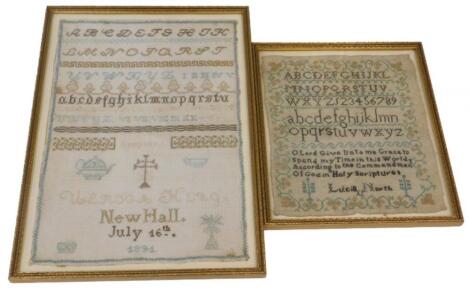 ABCDEFGHIK
LMNOPQRST
UVWXYZ
abcdefghijklmnopqrstu
New Hall.
July 16th.
1891
ABCDEFGHIJKL
MNOPQRSTUV
WXYZ123456789
abcdefghijklmn
opqrstuvwxyz
O Lord Give Unto me Grace to
Spend my Time in this World,
According to the Commandmen
Of God in Holy Scriptures
Lucia North